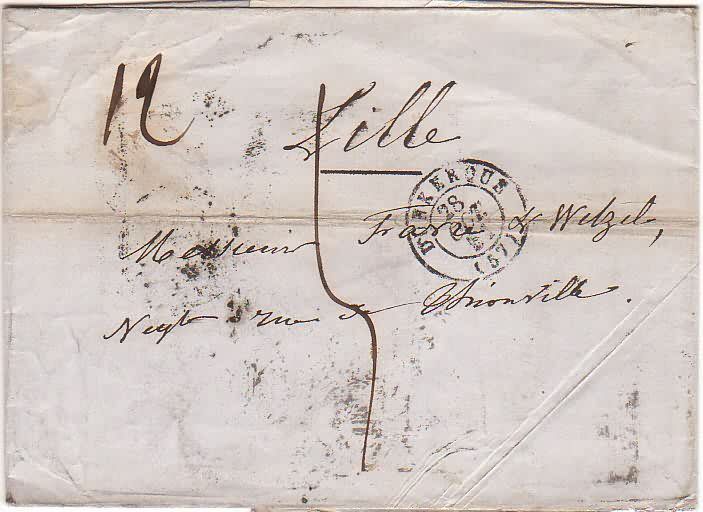 12
Lille
DUNKERQUE (57)
28
5
Messieurs Favre & Wetzel,
Negts rue de Thionville.